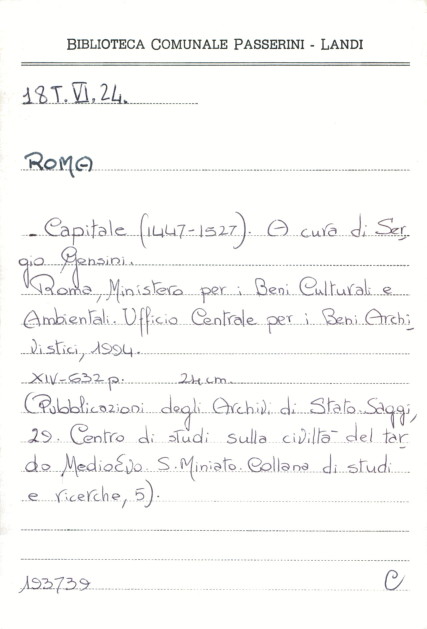 BIBLIOTECA COMUNALE PASSERINI - LANDI
18T.VI.24.
ROMA
- Capitale (1447-1527). A cura di Ser
gio Gensini.
Roma, Ministero per i Beni Culturali e
Ambientali. Ufficio Centrale per i Beni Archi
vistici, 1994.
XIV-632 p. 24 cm.
(Pubblicazioni degli Archivi di Stato. Saggi,
29. Centro di studi sulla civiltà del tar
do MedioEvo. S. Miniato. Collana di studi
e ricerche, 5).
193739 C